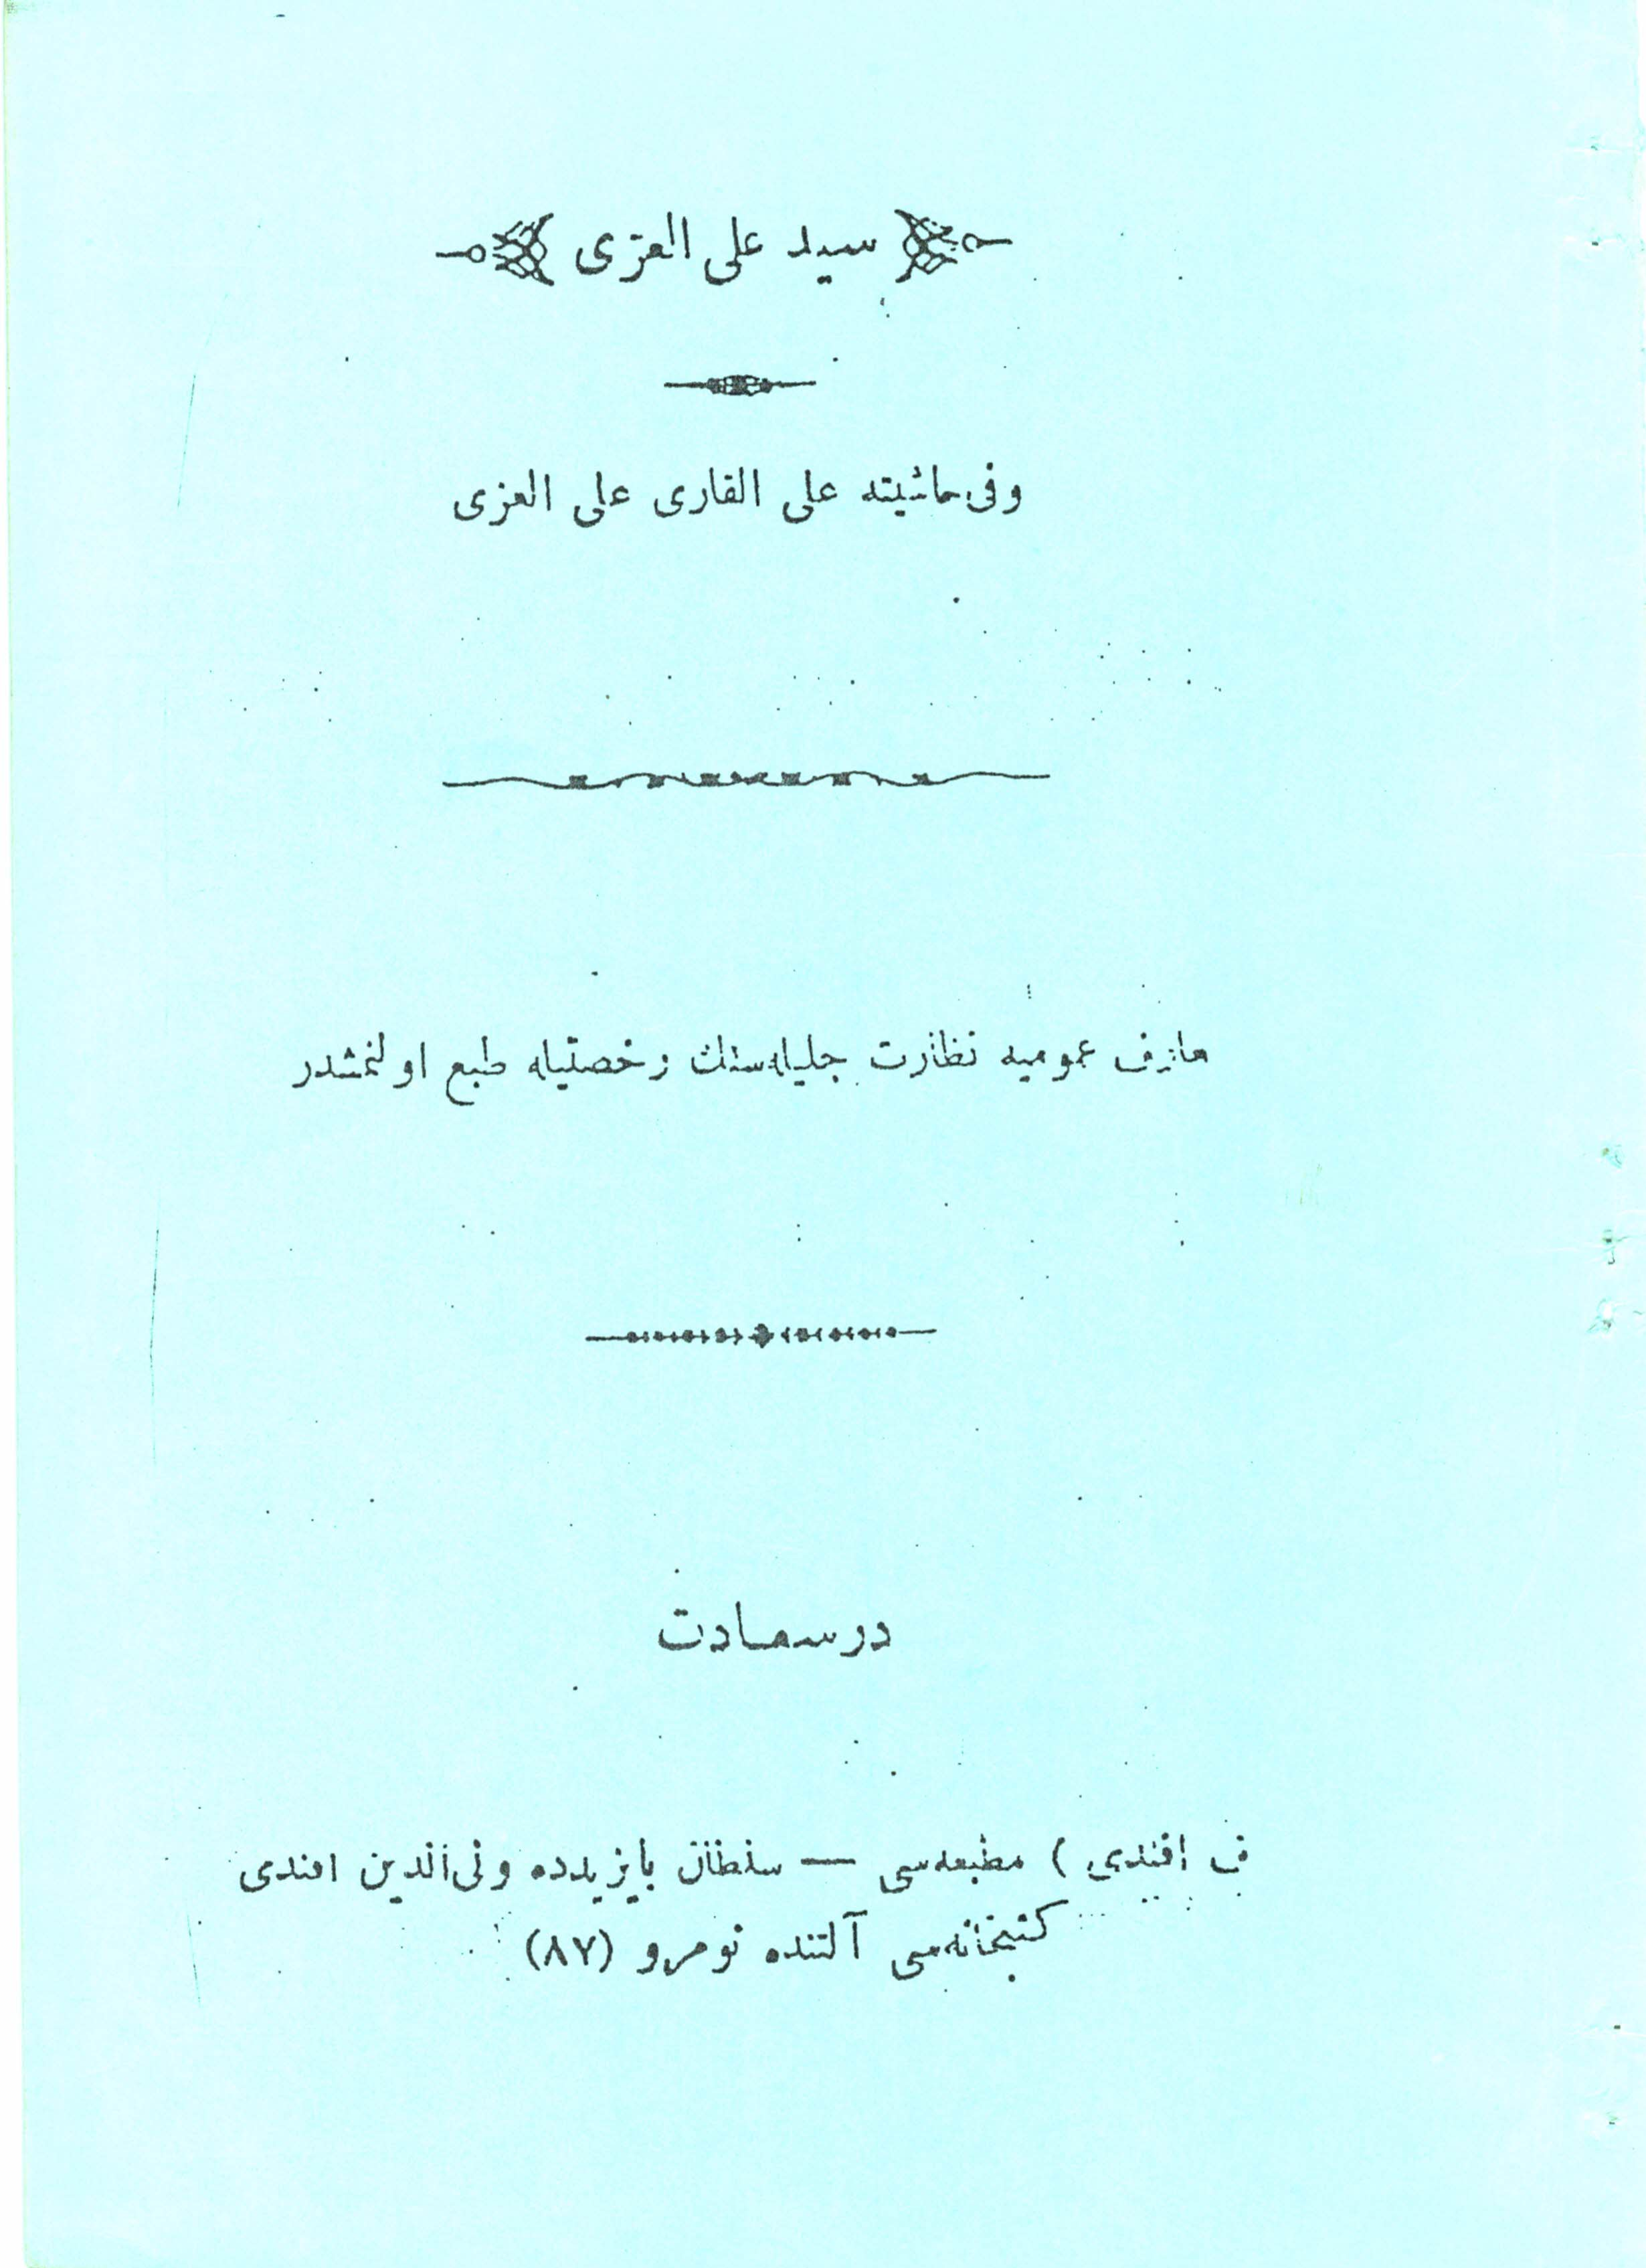 سيد على العزى
وفى حاشيته على القارى على العزى
معارف عموميه نظارت جليله‌سنك رخصتيله طبع اولنمشدر
درسعادت
ف افندى ) مطبعه‌سى — سلطان بايزيدده ولى الدين افندى
كتبخانه‌سى آلتنده نومرو (٨٧)